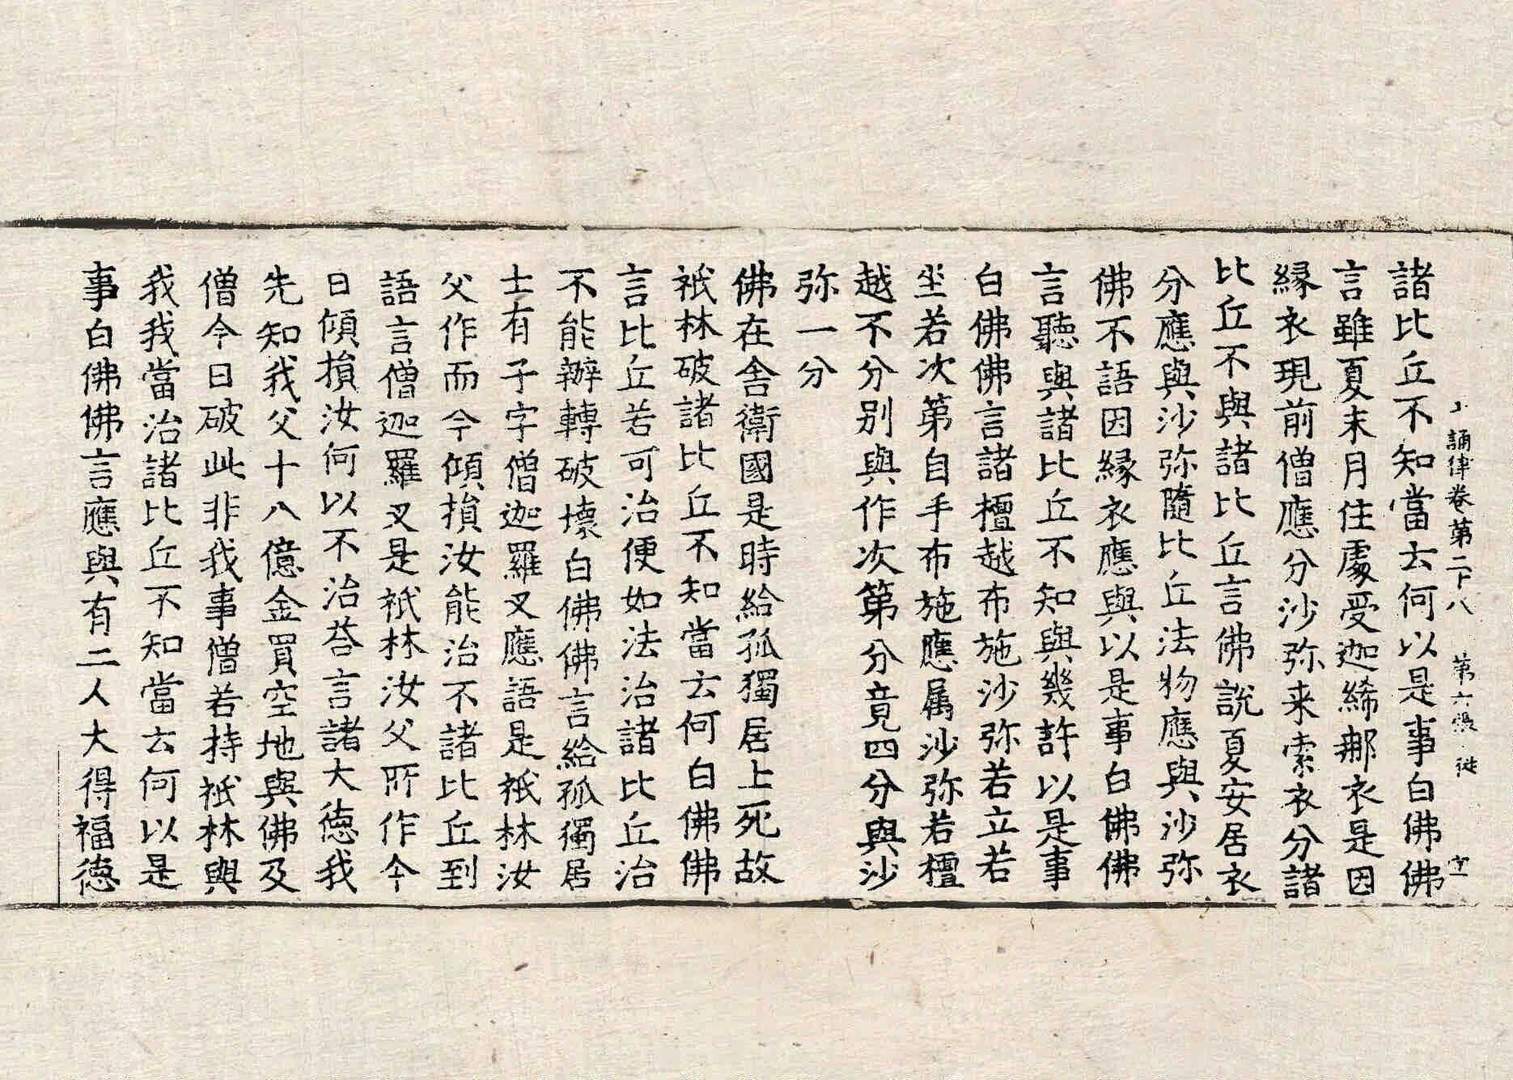 十誦律卷第二十八 第六張 従
諸比丘不知當云何以是事白佛佛
言雖夏末月住處受迦絺郍衣是因
縁衣現前僧應分沙弥来索衣分諸
比丘不與諸比丘言佛說夏安居衣
分應與沙弥隨比丘法物應與沙弥
佛不語因縁衣應與以是事白佛佛
言聽與諸比丘不知與幾許以是事
白佛佛言諸檀越布施沙弥若立若
坐若次第自手布施應属沙弥若檀
越不分别與作次第分竟四分與沙
弥一分
佛在舍衛國是時給孤獨居士死故
祇林破諸比丘不知當云何白佛佛
言比丘若可治便如法治諸比丘治
不能辦轉破壊白佛佛言給孤獨居
士有子字僧迦羅叉應語是祇林汝
父作而今傾損汝能治不諸比丘到
語言僧迦羅叉是祇林汝父所作今
日傾損汝何以不治荅言諸大徳我
先知我父十八億金買空地與佛及
僧今日破此非我事僧若持祇林與
我我當治諸比丘不知當云何以是
事白佛佛言應與有二人大得福徳